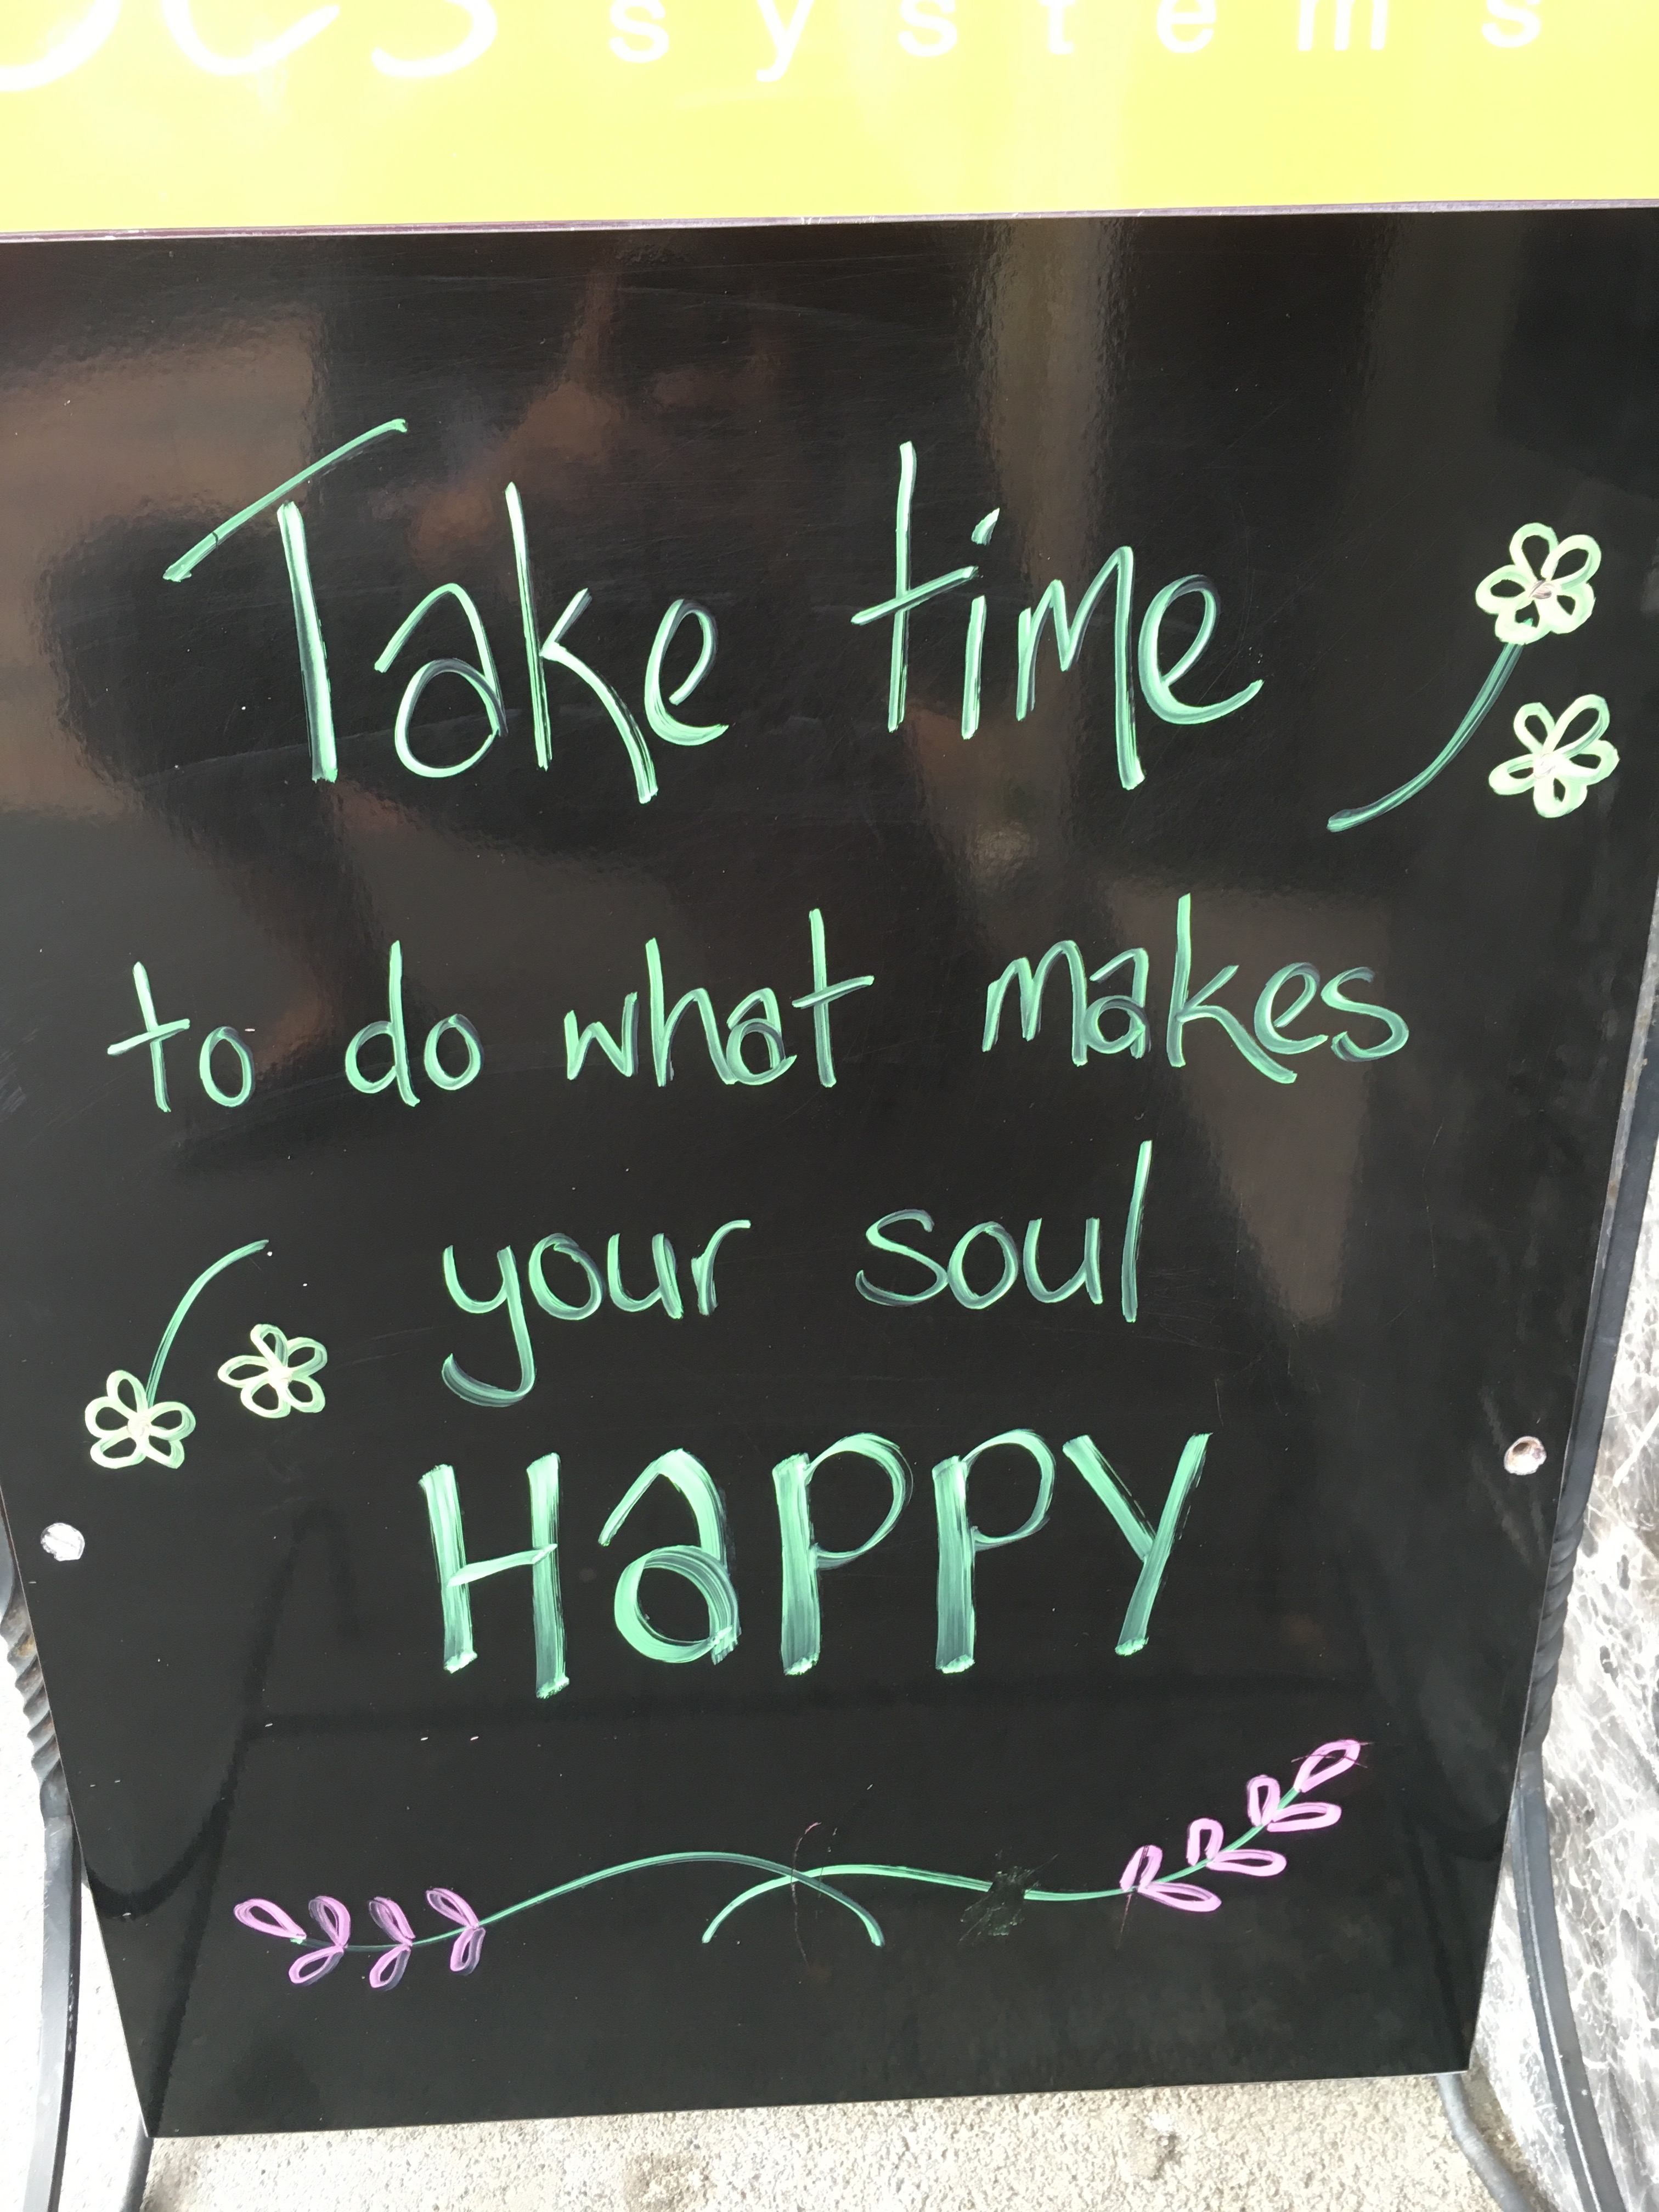 systems
Take time
to do what makes
your soul
HaPPY